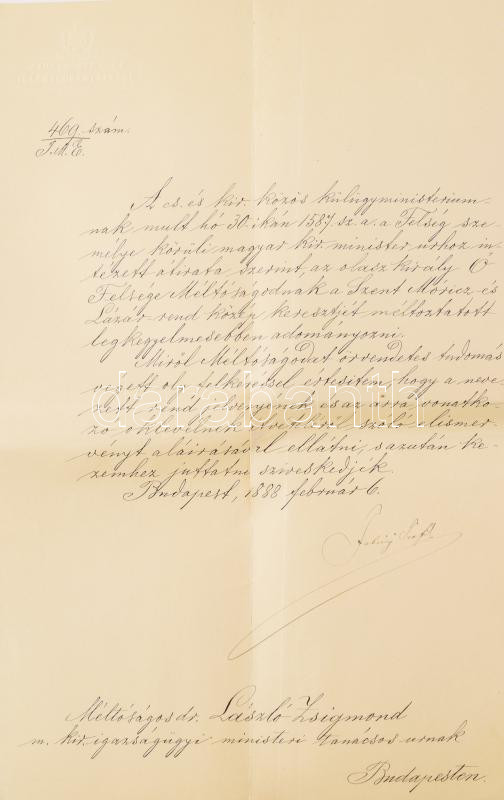 469 szám.
I.M.E.
A cs. és kir. közös külügyministerium-
nak mult hó 30.ikán 1587. sz. a. a Felség sze-
mélye körüli magyar kir. minister urhoz in-
tézett átirata szerint, az olasz király Ő
Felsége Méltóságodnak a Szent Móricz- és
Lázár-rend közép keresztjét méltóztatott
legkegyelmesebben adományozni.
Miről Méltóságodat örvendetes tudomás
végett oly felkéréssel értesitem, hogy a neve-
zett rend jelvényeinek és az arra vonatko-
zó oklevélnek átvételéről szóló elismer-
vényt aláirásával ellátni, s azután ke-
zemhez juttatni sziveskedjék.
Budapest, 1888 február 6.
Méltóságos dr. László Zsigmond
m. kir. igazságügyi ministeri tanácsos urnak
Budapesten.
darabanth